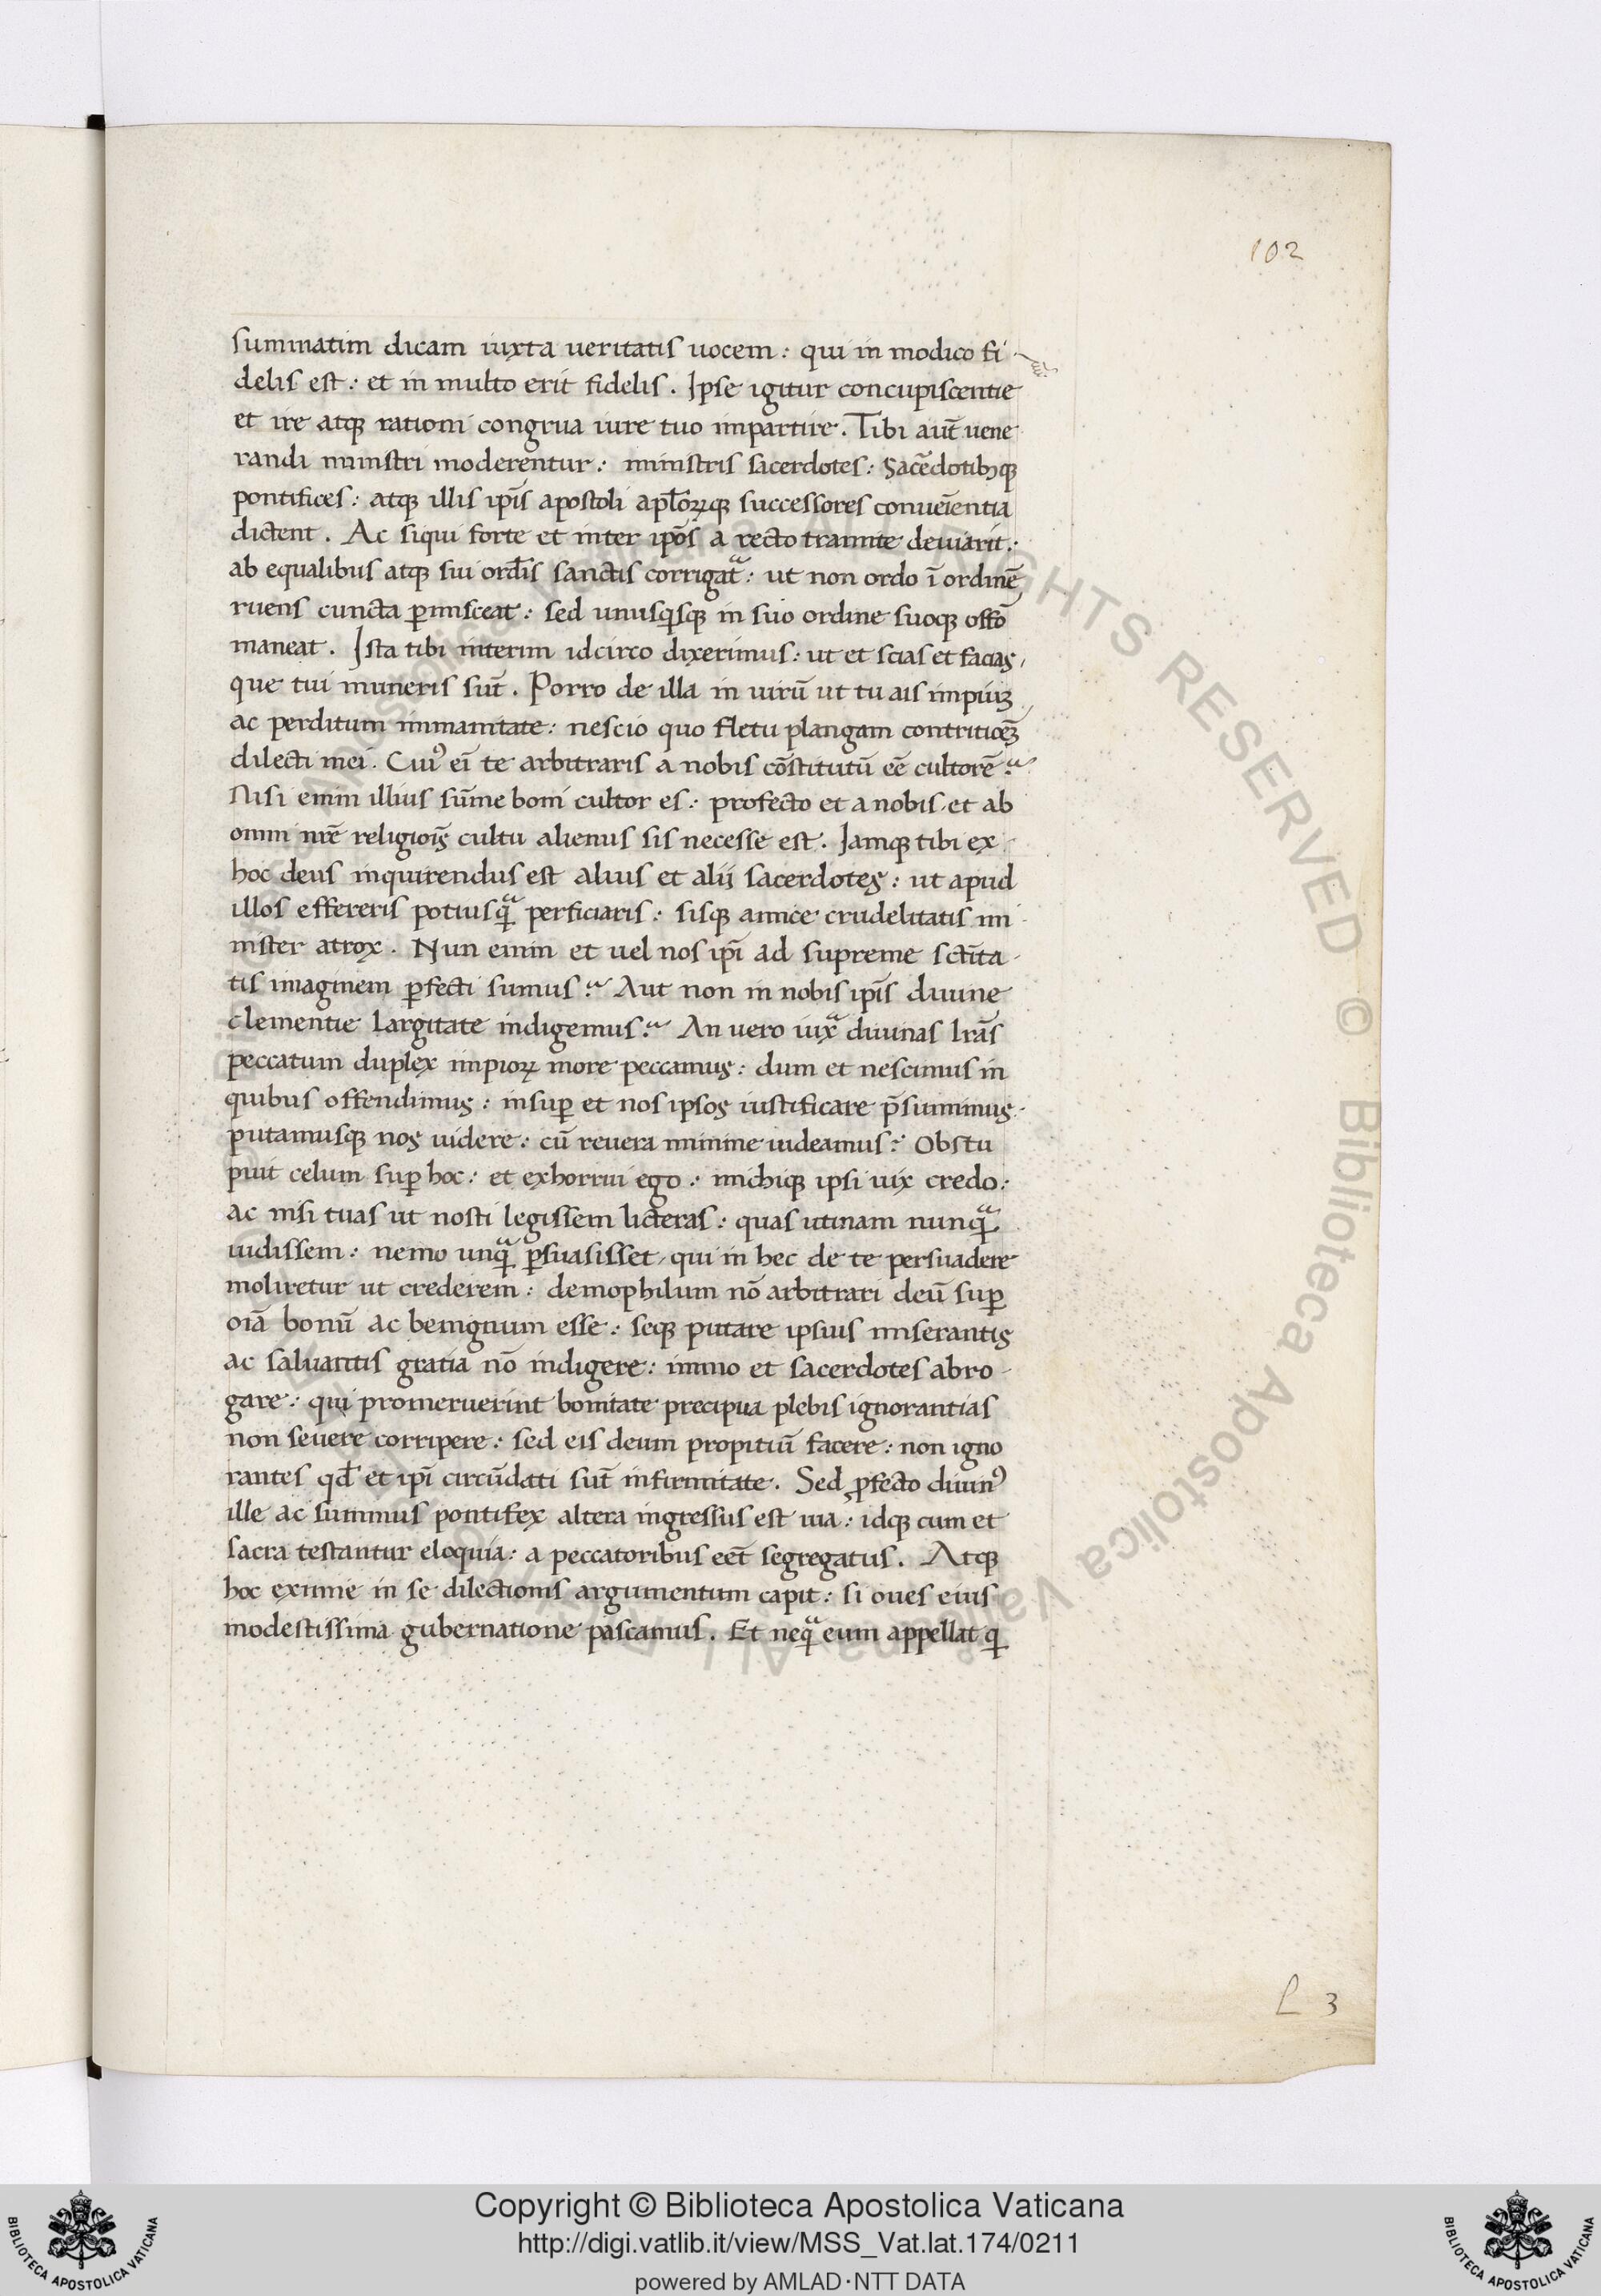 102
summatim dicam iuxta ueritatis uocem: qui in modico fi-
delis est: et in multo erit fidelis. Ipse igitur concupiscentie
et ire atqꝫ rationi congrua iure tuo impartire. Tibi aut̄ uene
randi ministri moderentur: ministris sacerdotes: Sacēdotibꝫqꝫ
pontifices: atqꝫ illis ip̄is apostoli apl̄oꝝqꝫ successores conuēientia
dictent. Ac siqui forte et inter ip̄os a recto tramite deuiarit:
ab equalibus atqꝫ sui ord̄is sanctis corrigatᵃ: ut non ordo ī ordinē
ruens cuncta ꝑmisceat: sed unusqisqꝫ in suo ordine suoqꝫ offō
maneat. Ista tibi interim idcirco dixerimus: ut et scias et facias,
que tui muneris sūt. Porro de illa in uirū ut tu ais impiuꝫ
ac perditum immanitate: nescio quo fletu plangam contriticēꝫ
dilecti mei. Cuiꝰ eī te arbitraris a nobis cōstitutū eē cultorē?
Nisi enim illius sūme boni cultor es: profecto et a nobis et ab
omni nr̄e religiōis cultu alienus sis necesse est. Iamqꝫ tibi ex
hoc deus inquirendus est alius et alii sacerdotes: ut apud
illos effereris potiusqᵃ perficiaris: sisqꝫ amice crudelitatis mi
nister atrox. Nun enim et uel nos ip̄i ad supreme sctīta-
tis imaginem ꝑfecti sumus? Aut non in nobis ip̄is diuine
clementie largitate indigemus? An uero iuxᵃ diuinas lr̄as
peccatum duplex impioꝝ more peccamus: dum et nescimus in
quibus offendimus: insuꝑ et nos ipsos iustificare p̄sumimus
putamusqꝫ nos uidere: cū reuera minime uideamus? Obstu
puit celum suꝑ hoc: et exhorrui ego: michiqꝫ ipsi uix credo:
ac nisi tuas ut nosti legissem licteras: quas utinam nunqᵃ
uidissem: nemo unqᵃ ꝑsuasisset, qui in hec de te persuadere
moliretur ut crederem: demophilum nō arbitrari deū suꝑ
oīa bonū ac benignum esse: seqꝫ putare ipsius miserantis
ac saluantis gratia nō indigere: immo et sacerdotes abro-
gare: qui promeruerint bonitate precipua plebis ignorantias
non seuere corripere: sed eis deum propitiū facere: non igno
rantes qd̄ et ip̄i circūdati sūt infirmitate. Sed ꝓfecto diuinꝰ
ille ac summus pontifex altera ingressus est uia: idqꝫ cum et
sacra testantur eloquia: a peccatoribus eēt segregatus. Atqꝫ
hoc eximie in se dilectionis argumentum capit: si oues eius
modestissima gubernatione pascamus. Et neqᵃ eum appellat qi
L 3
Copyright © Biblioteca Apostolica Vaticana
http://digi.vatlib.it/view/MSS_Vat.lat.174/0211
powered by AMLAD·NTT DATA
BIBLIOTECA APOSTOLICA VATICANA
BIBLIOTECA APOSTOLICA VATICANA